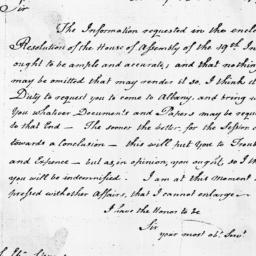 Sir
The Information requested in the enclo
Resolution of the House of Assembly of the 19th In
ought to be ample and accurate, and that nothin
may be omitted that may render it so, I think it
Duty to request you to come to Albany, and bring w
You whatever Documents and Papers may be requi
to that End — The sooner the better, for the Session d
towards a Conclusion — this will put you to Troub
and Expence — but as in opinion, you ought, so I th
you will be indemnified. I am at this moment
pressed with other Affairs, that I cannot enlarge —
I have the Honor to be
Sir
your most obt. Servt